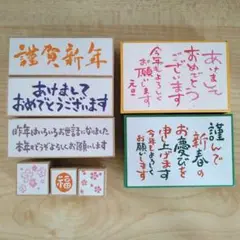 謹賀新年
あけまして
おめでとうございます
昨年はいろいろお世話になりました
本年もどうぞよろしくお願いします
福
あけまして
おめでとう
ございます
今年もよろしく
お願いします
元旦
謹んで
新春の
お慶びを
申し上げます
今年もよろしく
お願い致します